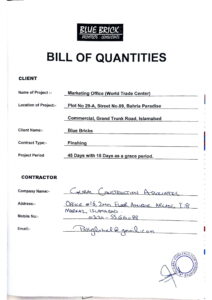 BLUE BRICK
BILL OF QUANTITIES
CLIENT
Name of Project :- Marketing Office (World Trade Center)
Location of Project:- Plot No 29-A, Street No.09, Bahria Paradise
Commercial, Grand Trunk Road, Islamabad
Client Name:- Blue Bricks
Contract Type:- Finshing
Project Period 45 Days with 15 Days as a grace period.
CONTRACTOR
Company Name:- Construction Associates
Address:- Office # 2nd Floor
Markaz, Islamabad
Mobile No:-
Email:- @gmail.com